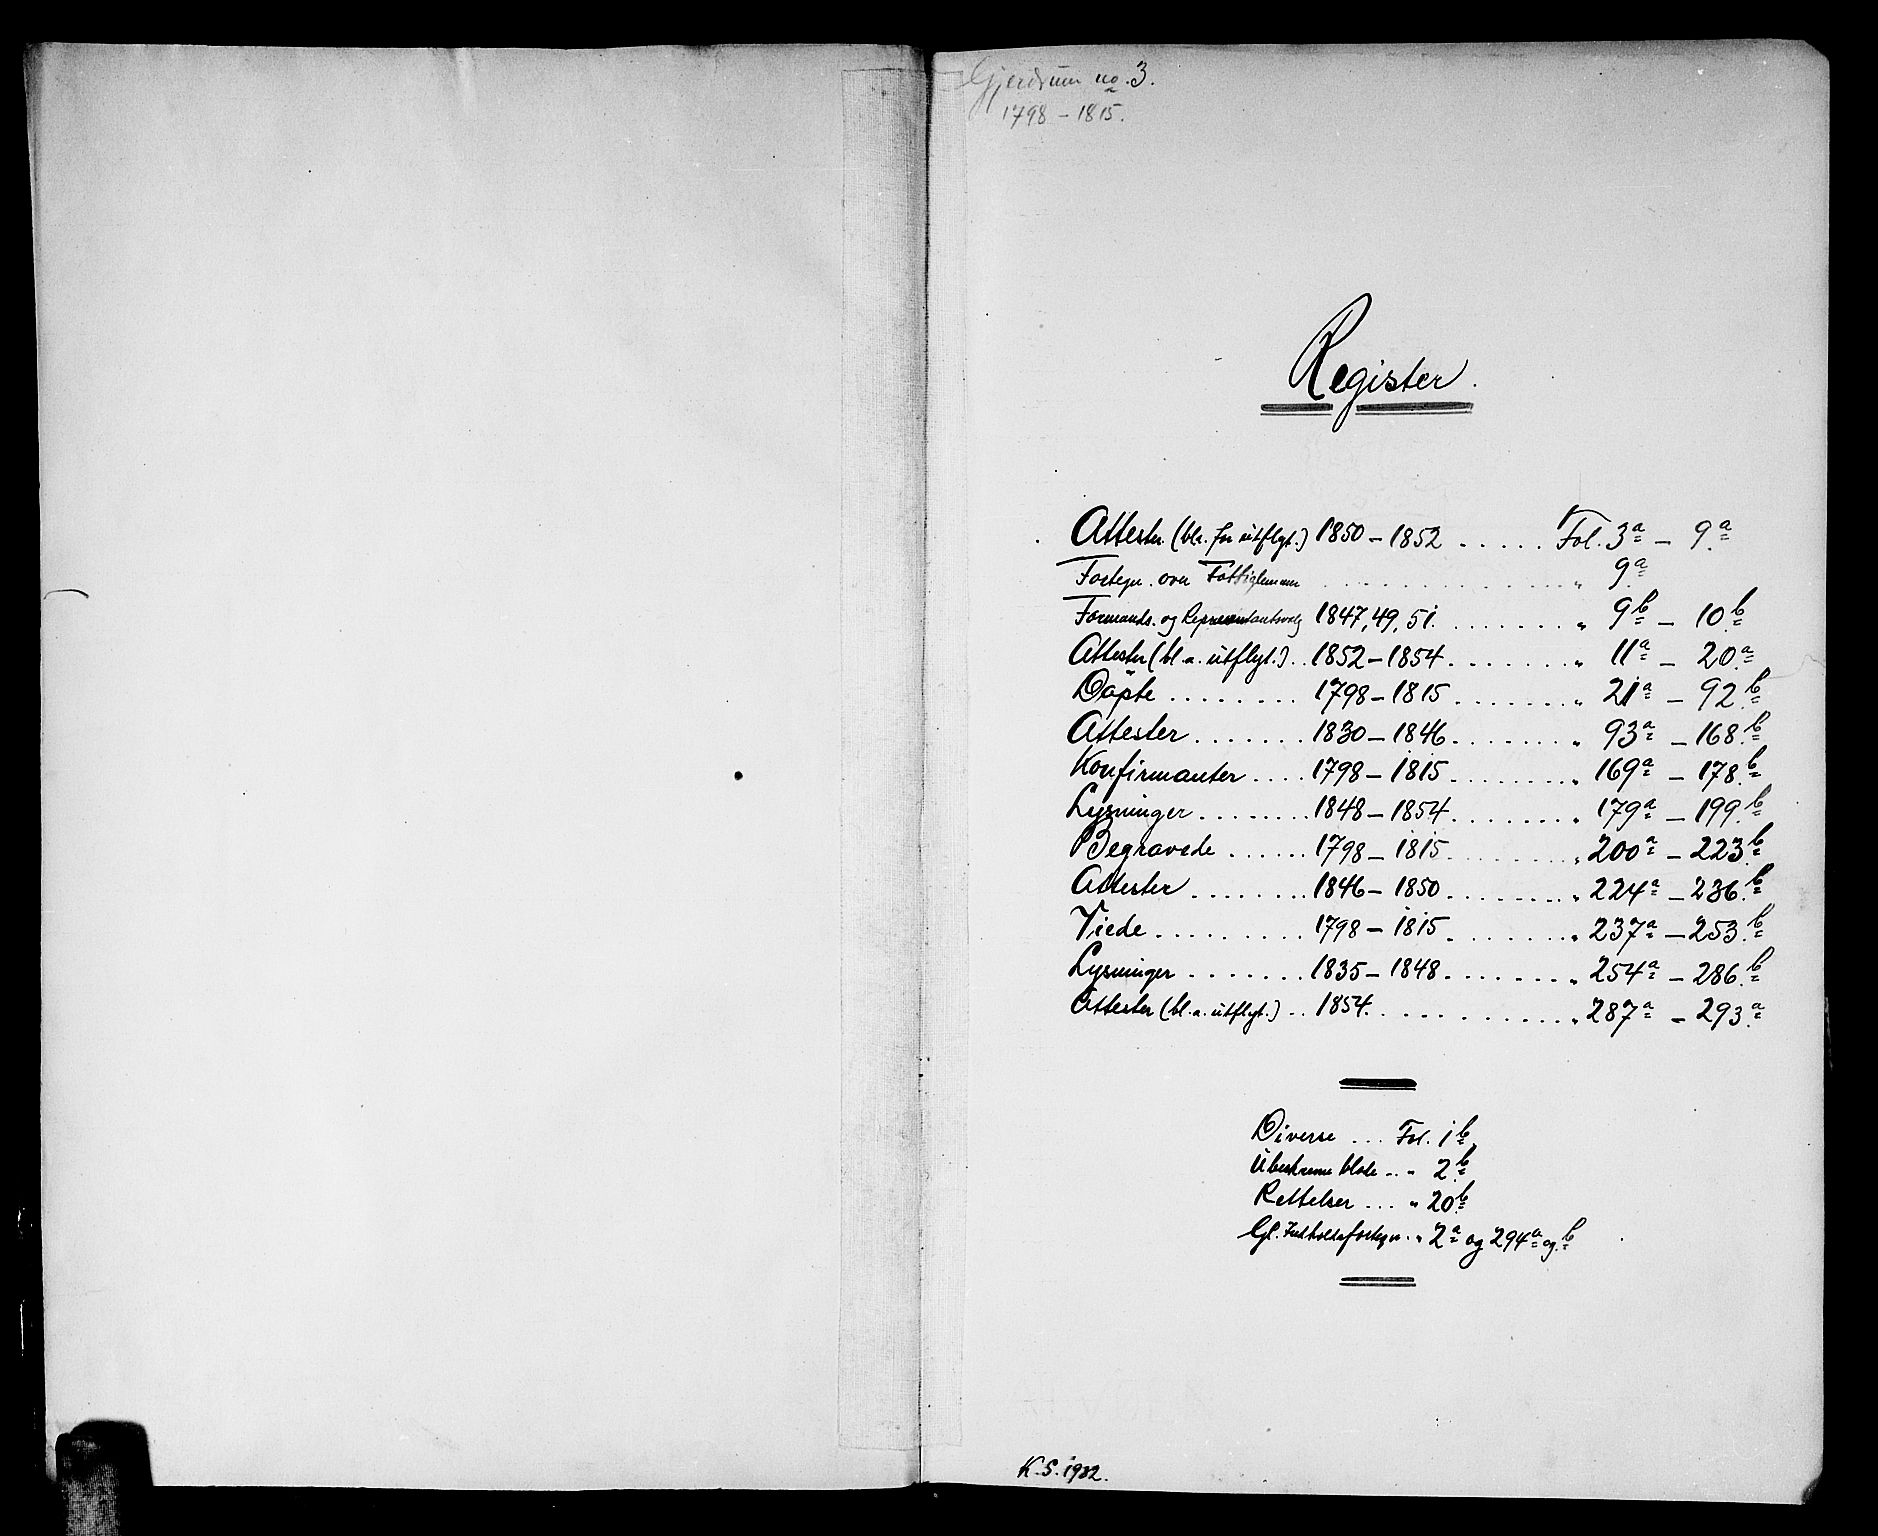 Gjerdrum no. 3.
1798 – 1815.
Register.
Attester (bl. for utflyt.) 1850 – 1852 ..... Fol. 3a – 9a
Fortegn. over Fattiglemmer ............ " 9a
Formands. og Representantvalg 1847, 49, 51. ........ " 9b – 10b
Attester (bl. a. utflyt.) .. 1852 – 1854 ....... " 11a – 20a
Döpte ........ 1798 – 1815 ....... " 21a – 92b
Attester ....... 1830 – 1846 ....... " 93a – 168b
Konfirmanter .... 1798 – 1815 ....... " 169a – 178b
Lysninger ........ 1848 – 1854 ........ " 179a – 199b
Begravede ...... 1798 – 1815 ....... " 200a – 223b
Attester ........ 1846 – 1850 ....... " 224a – 236b
Viede ......... 1798 – 1815 ....... " 237a – 253b
Lysninger ....... 1835 – 1848 ....... " 254a – 286b
Attester (bl. a. utflyt.) .. 1854. .......... " 287a – 293a
Diverse ... Fol. 1b
Ubeskrevne blade .. " 2b
Rettelser ... " 20b
Gl. Indholdsfortegn. . " 2a og 294a og b
K. S. 1932.